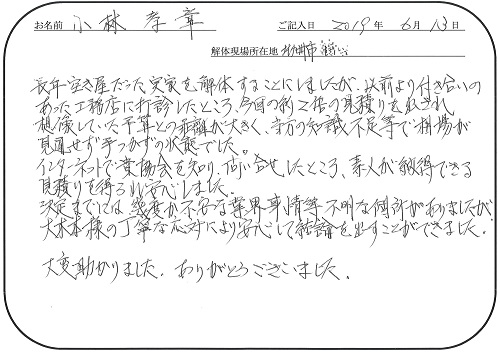 お名前 小林 孝章 ご記入日 2019年 6月 13日
解体現場所在地
長年空き家だった実家を解体することにしましたが、以前より付き合いの
あった工務店に打診したところ、今回の約2倍の見積りを出され
想像していた予算との乖離が大きく、当方の知識不足等で相場が
見通せず手つかずの状態でした。
インターネットで貴協会を知り、問い合せしたところ、素人が納得できる
見積りを得られ安心しました。
決定までには幾度か不安な業界事情等不明な個所がありましたが
様の丁寧な応対により安心して結論を出すことができました。
大変助かりました。ありがとうございました。